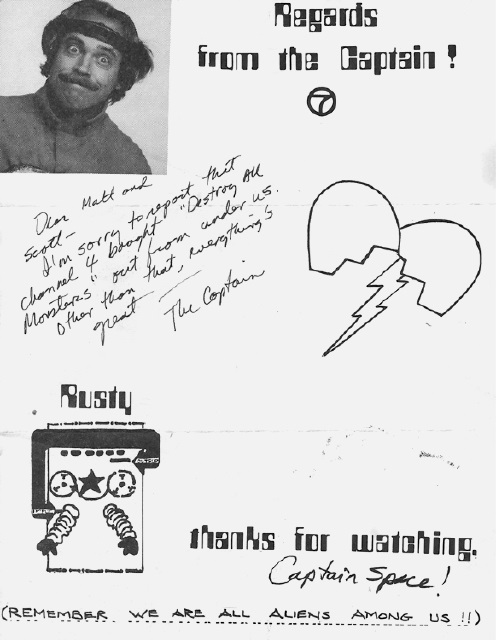 Regards
from the Captain!
7
Dear Matt and
Scott—
I'm sorry to report that
channel 4 bought "Destroy All
Monsters" out from under us.
Other than that, everything's
great —
The Captain
Rusty
thanks for watching.
Captain Space!
(REMEMBER WE ARE ALL ALIENS AMONG US!!)